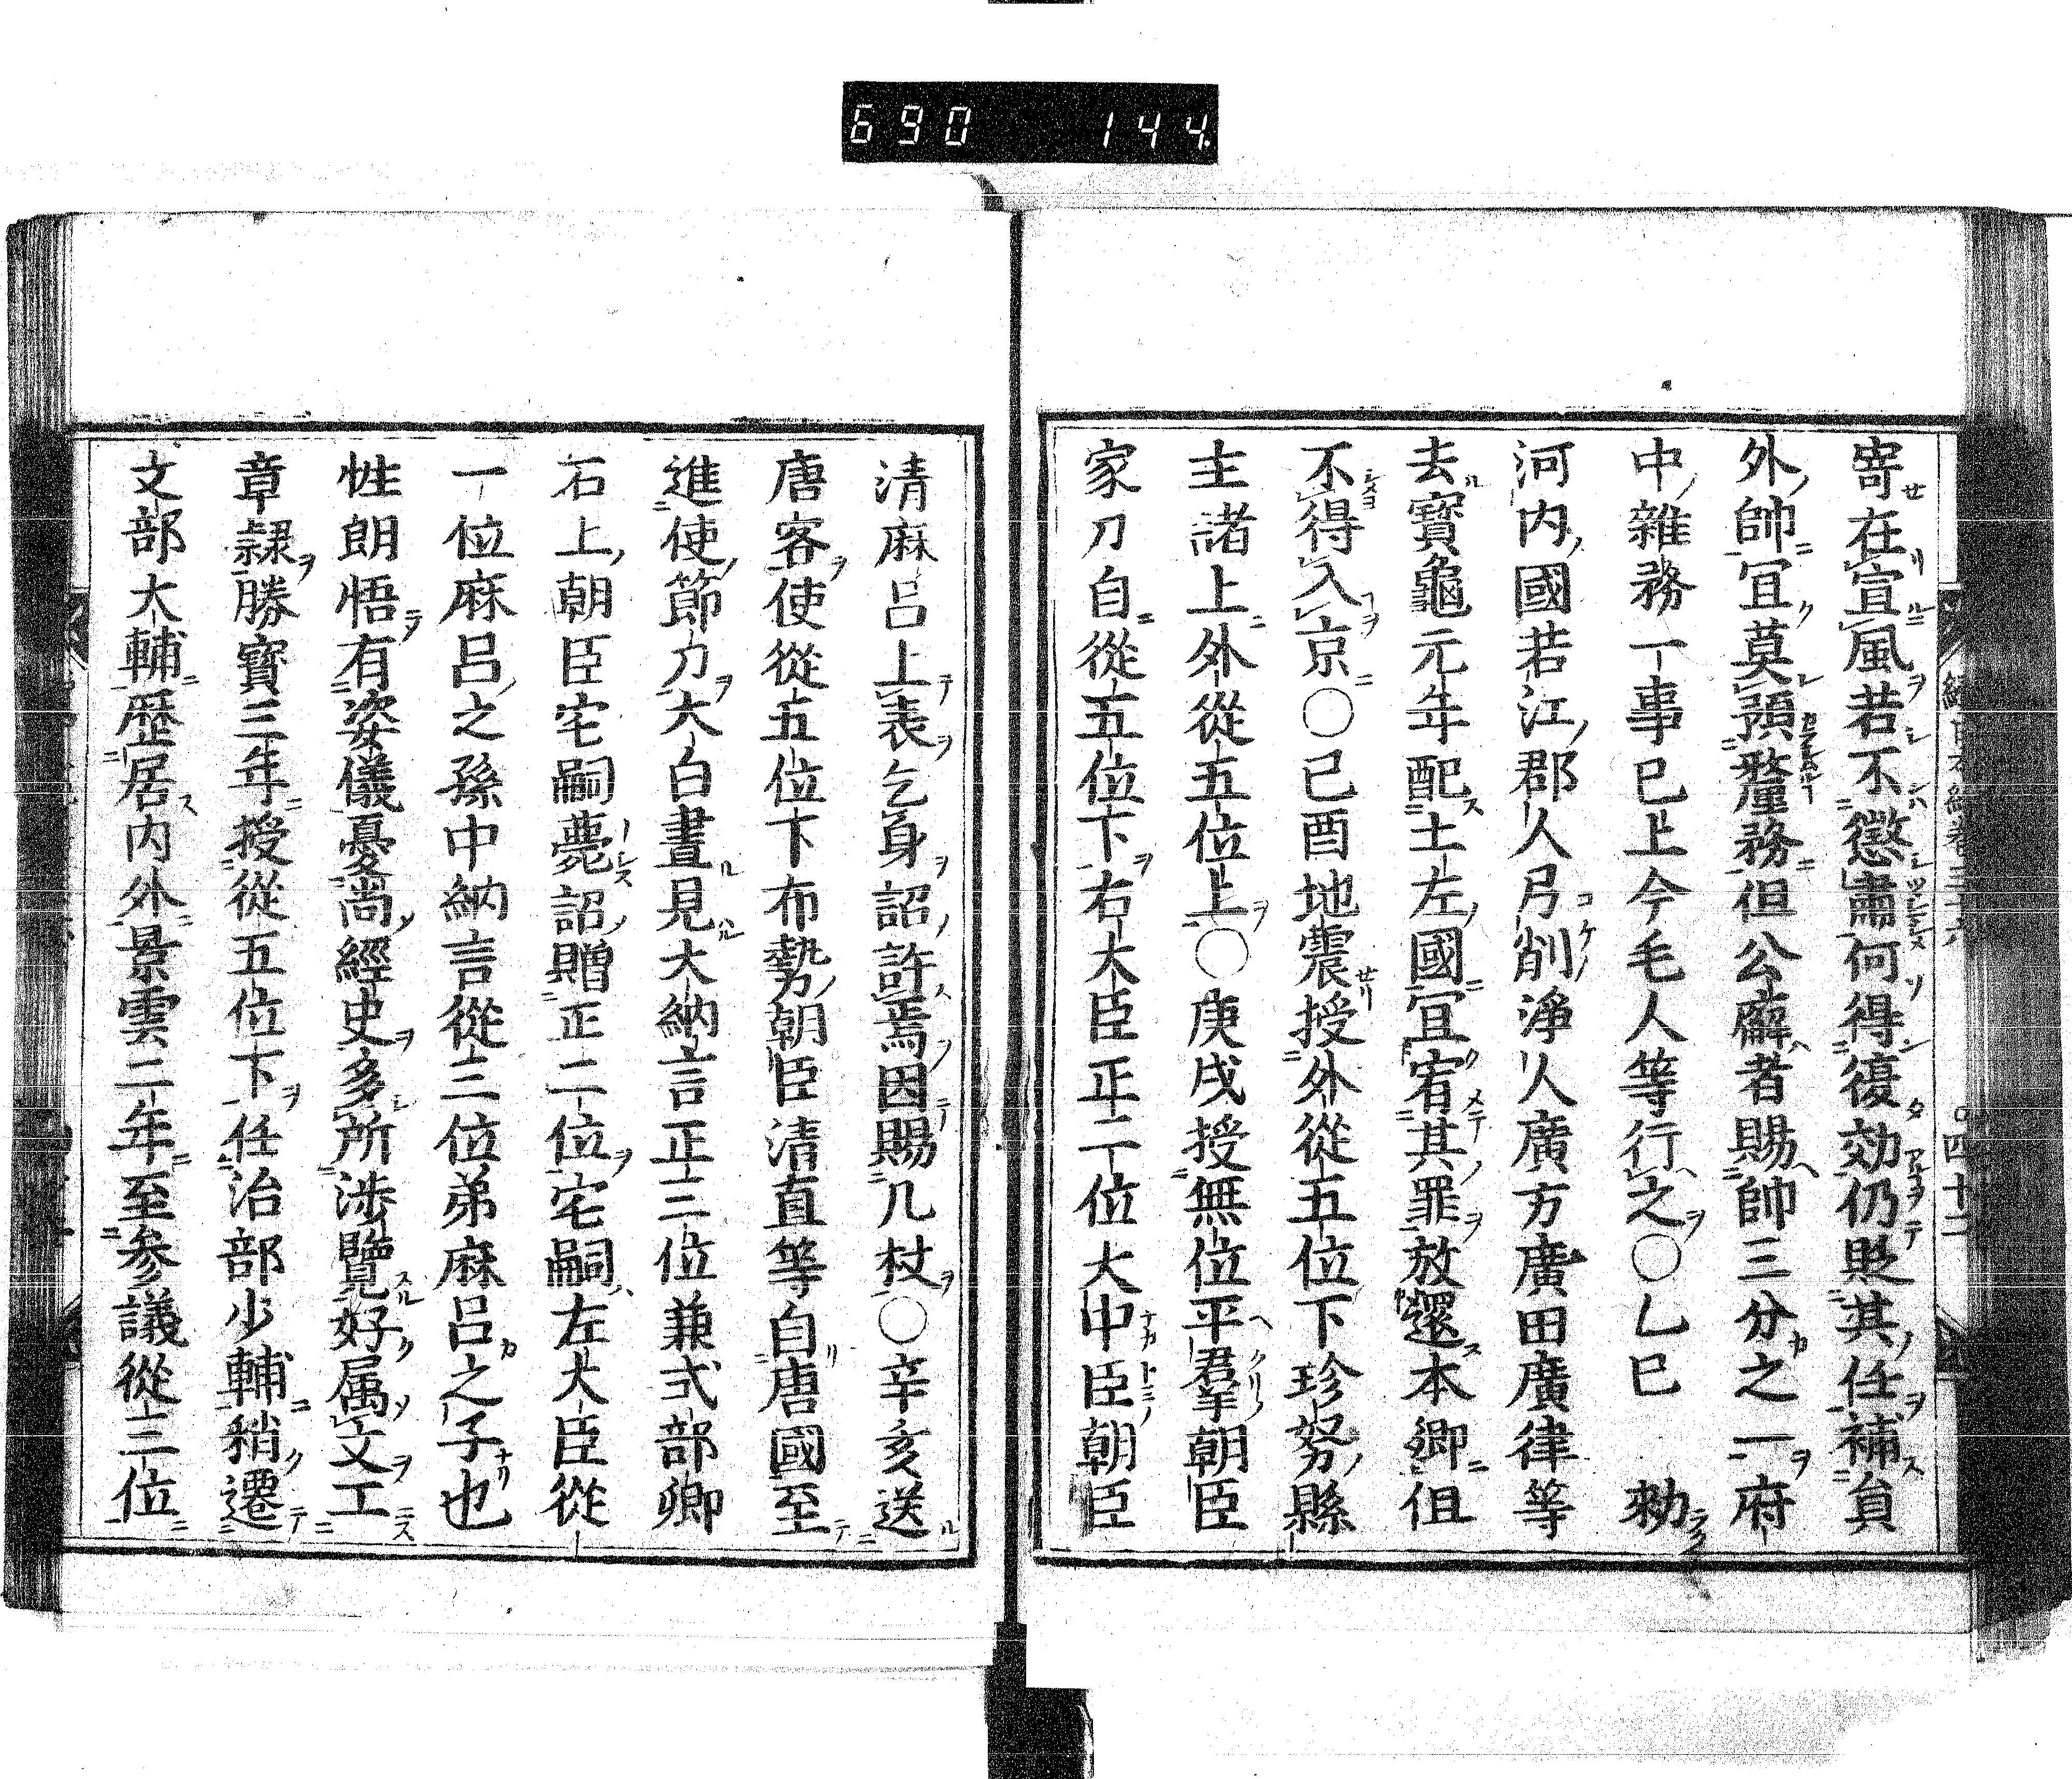 690 144
寄在宣風若不懲肅何得復効仍貶其任補員
外帥宜莫預釐務但公廨者賜帥三分之一府
中雜務一事已上今毛人等行之○乙巳 勑
河内國若江郡人弓削淨人廣方廣田廣律等
去寶龜元年配土左國宜宥其罪放還本鄉但
不得入京○己酉地震授外從五位下珍努縣
主諸上外從五位上○庚戌授無位平群朝臣
家刀自從五位下右大臣正二位大中臣朝臣
清麻呂上表乞身詔許焉因賜几杖○辛亥送
唐客使從五位下布勢朝臣清直等自唐國至
進使節刀大白晝見大納言正三位兼式部卿
石上朝臣宅嗣薨詔贈正二位宅嗣左大臣從
一位麻呂之孫中納言從三位弟麻呂之子也
性朗悟有姿儀憂尚經史多所涉覽好属文工
章隷勝寶三年授從五位下任治部少輔稍遷
文部大輔歷居内外景雲二年至参議從三位
四十二